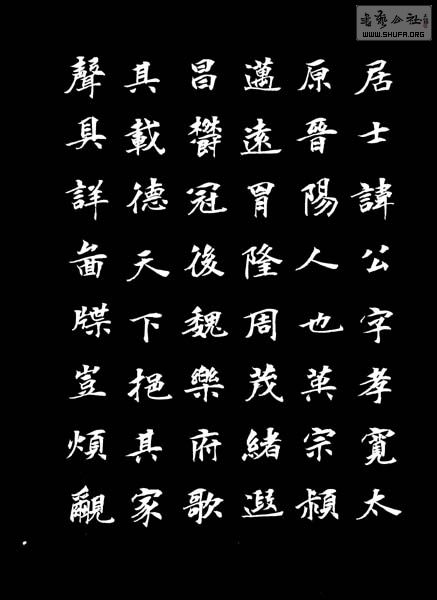 居士諱公字孝寬太
原晉陽人也英宗穎
邁遠冑隆周茂緒遐
昌欝冠後魏樂府歌
其載德天下挹其家
聲具詳啚牒豈煩覼
書藝公社
WWW.SHUFA.ORG